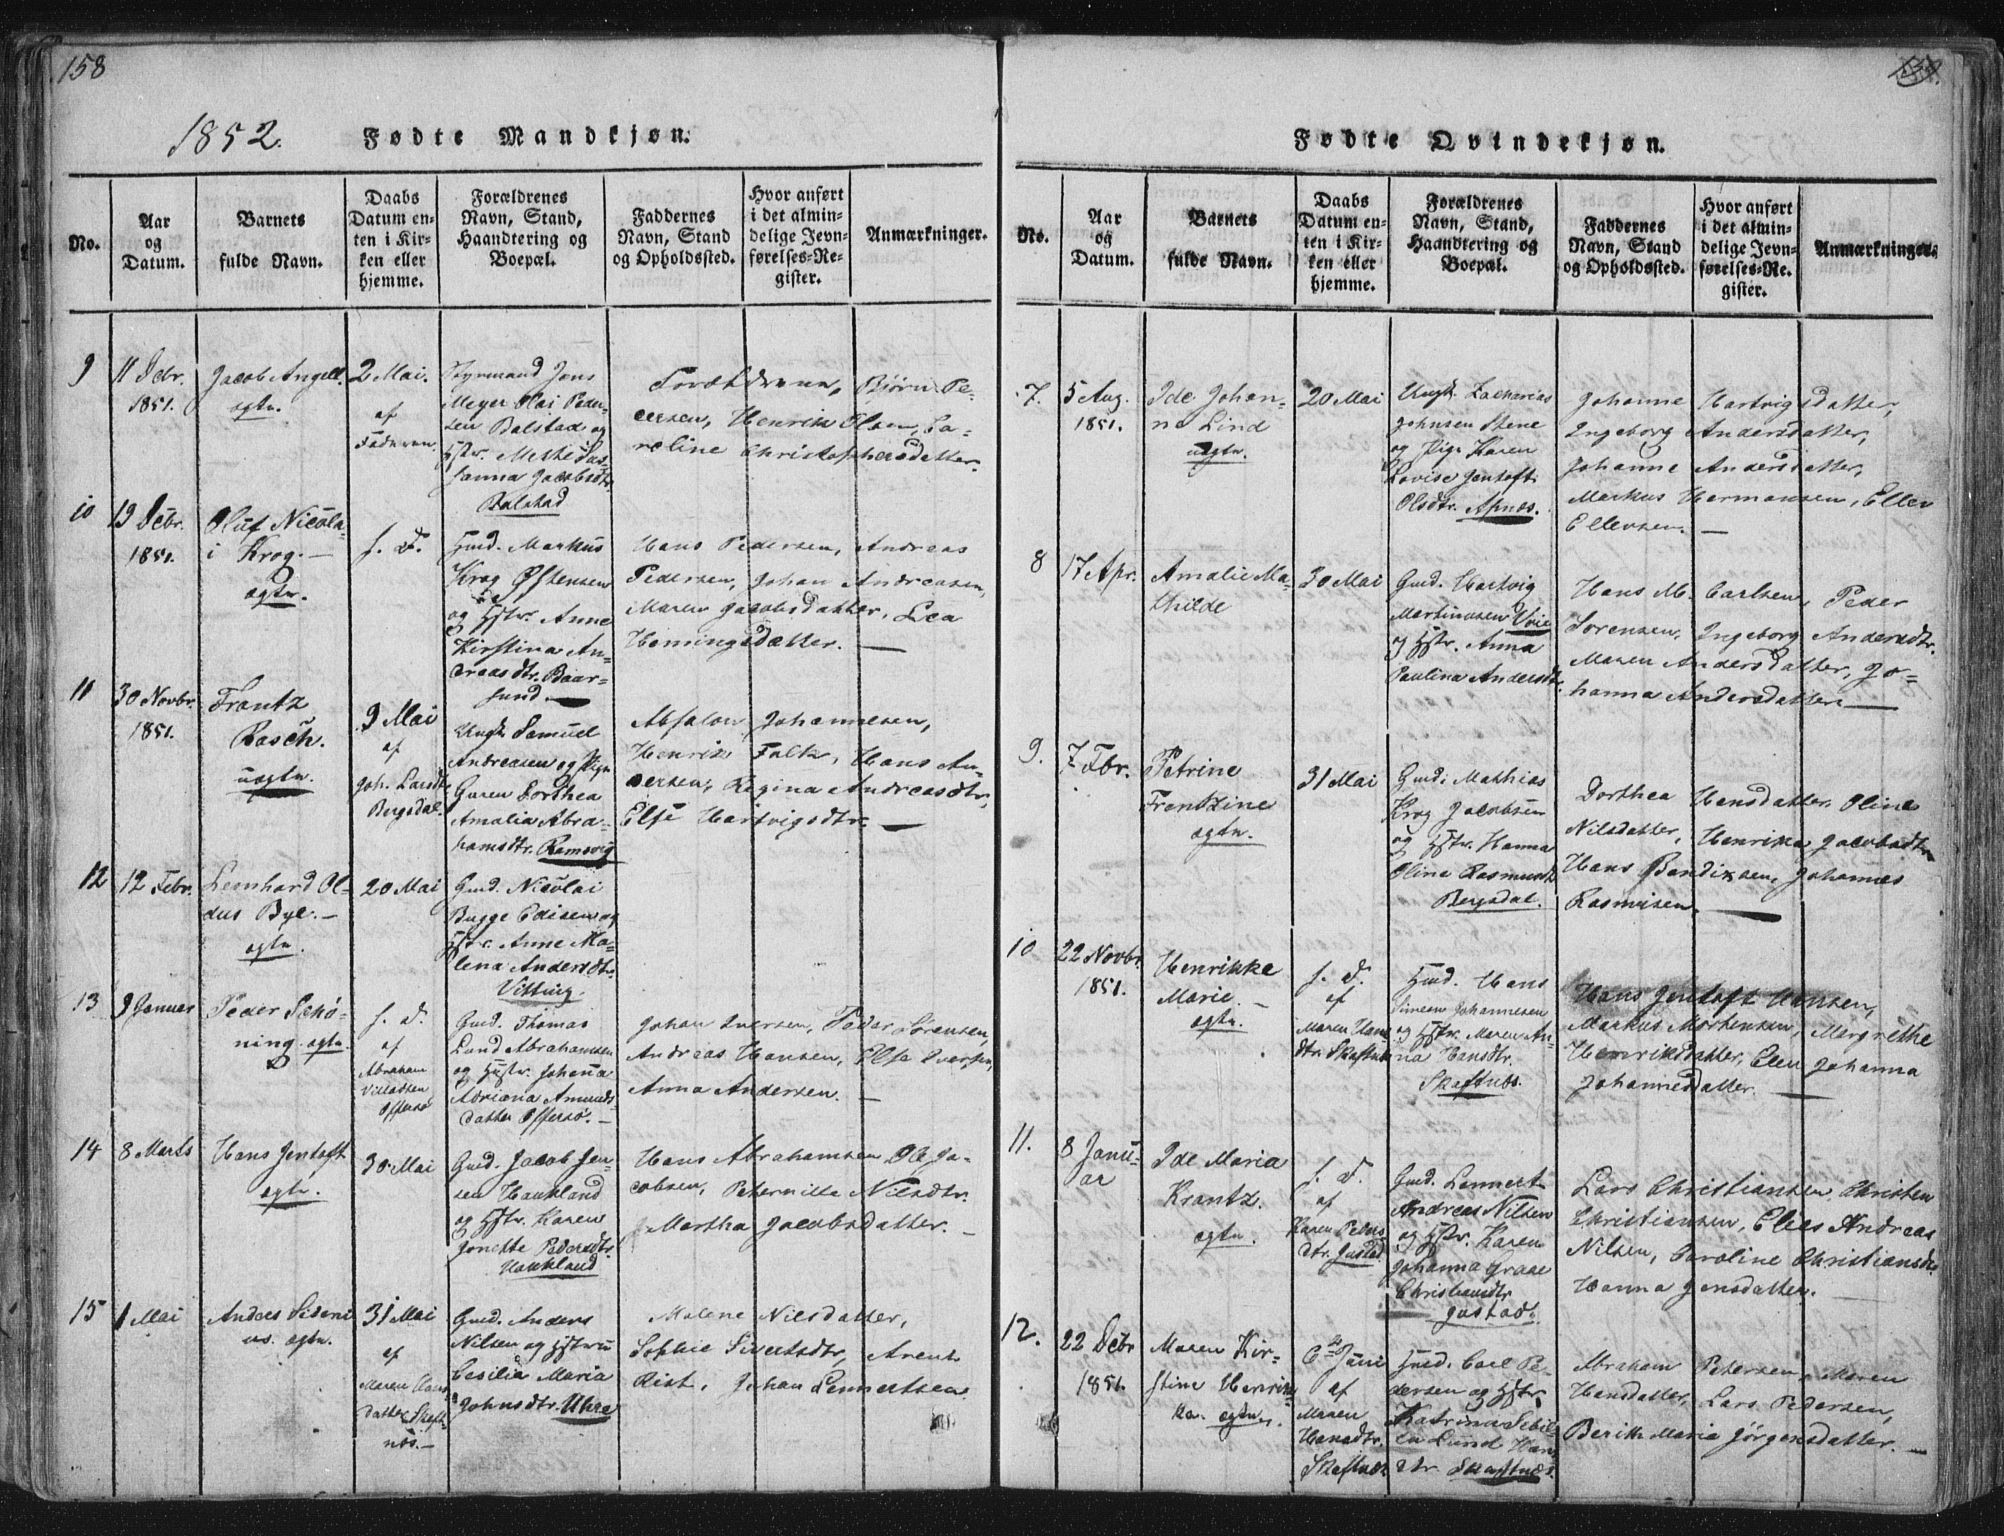 158
1852.
Fødte Mandkjøn.
No.
Aar
og
Datum.
Barnets
fulde Navn.
Daabs
Datum en-
ten i Kir-
ken eller
hjemme.
Forældrenes
Navn, Stand,
Haandtering og
Boepæl.
Faddernes
Navn, Stand
og Opholdssted.
Hvor anført
i det almin-
delige Jevn-
førelses-Re-
gister.
Anmærkninger.
9
11 Debr.
1851.
Jacob Angell.
ægte.
2 Mai.
af
Faderen
Styrmand Jens
Meyer Olai Peder-
sen Balstad og
Hstr. Mette Su-
sanna Jacobsdtr.
Balstad
Forældrene, Bjørn Pe-
dersen, Henrik Olsen, Ca-
roline Christophersdatter.
10
19 Debr.
1851.
Oluf Nicola-
i Krog. —
ægte.
s. D.
Hmd. Markus
Krog Østensen
og Hstr. Anne
Kirstina An-
dreasdtr. Baar-
sund. —
Hans Pedersen, Andreas
Pedersen, Johan Andreasen,
Maren Jacobsdatter, Lea
Hemingsdatter. —
11
30 Novbr.
1851.
Frantz
Rasch.
uægte.
9 Mai
af
Joh. Larsdtr.
Bergsdal.
Ungk. Samuel
Andreasen og Pige
Guren Dorthea
Amalia Abra-
hamsdtr. Ramsvig
Absalon Johannesen,
Henrik Falk, Hans An-
dersen, Regina Andreasdtr,
Else Hartvigsdtr. —
12
12 Febr.
Lennhard Ol-
dus Bye. —
ægte.
20 Mai
Gmd. Nicolai
Bugge Edisen og
Hstr. Anne Ma-
lena Andersdtr.
Vitting.
13
9 Januar
Peder Schø-
ning. ægte.
s. D.
af
Abraham
Villadsen
Offersø
Gmd. Thomas
Lund Abrahamsen
og Hustr. Johanna
Adriana Amunds-
datter Offersø. —
Johan Iversen, Peder Sørensen,
Andreas Hansen, Else Iversen,
Anna Andersen. —
14
8 Marts
Hans Jentoft
ægte.
30 Mai
Gmd. Jacob Jen-
sen Haukland
og Hstr. Karen
Jonette Pedersdtr.
Haukland
Hans Abrahamsen Ole Ja-
cobsen, Peternille Nilsdtr.
Martha Jacobsdatter. —
15
1 Mai
Anders Sideni
us. ægte.
31 Mai
af
Maren Hans
datter Skaft-
nes. —
Gmd. Anders
Nilsen og Hstru
Cecilia Maria
Johnsdtr. Uhre
Malene Nilsdatter,
Sophie Sivertsdtr, Arent
Rist, Johan Lennertsen
Fødte Qvindekjøn.
No.
Aar
og
Datum.
Barnets
fulde Navn.
Daabs
Datum en-
ten i Kir-
ken eller
hjemme.
Forældrenes
Navn, Stand,
Haandtering og
Boepæl.
Faddernes
Navn, Stand
og Opholdssted.
Hvor anført
i det almin-
delige Jevn-
førelses-Re-
gister.
Anmærkninger.
7.
5 Aug.
1851.
Ide Johan-
na Lind
uægte.
20 Mai
Ungk. Zacharias
Johnsen Stene
og Pige Karen
Lovise Jentoft
Olsdtr. Apnes.
Johanne Hartvigsdatter,
Ingeborg Andersdatter,
Johanne Andersdatter,
Markus Hermansen, Eller
Ellevsen. —
8
17 Apr.
Amalie Ma-
thilde
30 Mai
Gmd. Hartvig
Martinusen Voie
og Hstr. Anna
Paulina Andersdtr.
Hans M. Carlsen, Peder
Sorensen, Ingeborg Andersdtr.
Maren Andersdatter, Jo-
hanna Andersdatter. —
9.
7 Fbr.
Petrine
Frentzine
ægte.
31 Mai
Gmd. Mathias
Krog Jacobsen
og Hstr. Hanna
Olina Rasmusdtr
Bergsdal.
Dorthea Hansdatter, Oline
Nilsdatter, Henrikka Jacobsdtr
Hans Bendixsen, Johannes
Rasmusen. —
10
22 Novbr.
1851.
Henrikke
Marie. —
ægte.
s. D.
af
Maren Hans
dtr. Skaftnes
Hmd. Hans
Simeon Johannesen
og Hstr. Maren An-
na Hansdtr.
Skaftnes.
Hans Jentoft Hansen,
Markus Mortensen, Margrethe
Henriksdatter, Elen Johanna
Johannesdatter.
11.
8 Janu-
ar
Ide Maria
Krantz.
ægte.
s. D.
af
Karen Peders
dtr. Justad
Gmd. Lennert
Andreas Nilsen
og Hstr. Karen
Johanna Graae
Christiansdtr
Justad.
Lars Christiansen, Christen
Christiansen, Elias Andreas
Nilsen, Caroline Christiansdtr.
Hanna Jensdatter. —
12.
22 Debr
1851.
Maren Kir-
stine Henrik-
ka. ægte.
6te Juni
af
Maren
Hansdtr.
Skaftnes
Hmd. Carl Pe-
dersen og Hstr.
Katrina Sebil-
la Lund Hans
dtr. Skaftnes.
Abraham Petersen, Maren
Hansdatter, Lars Pedersen,
Berith Maria Jørgensdatter. —